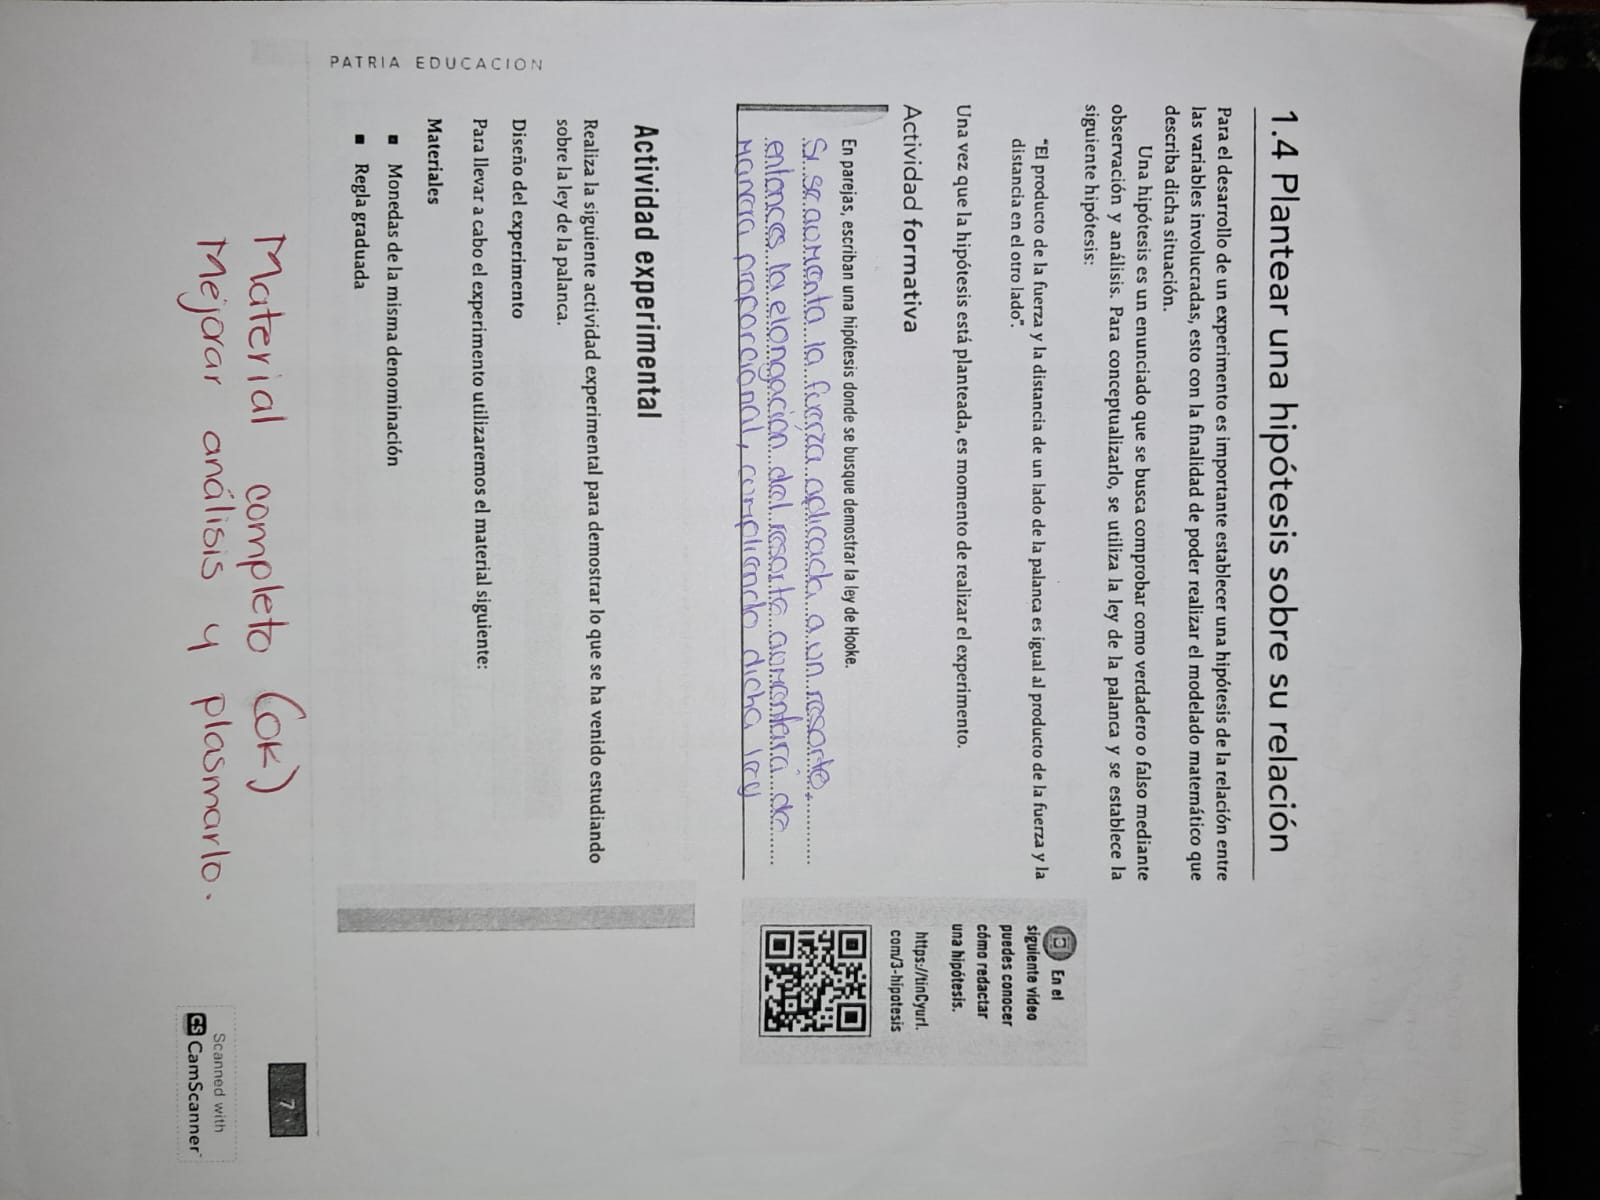 1.4 Plantear una hipótesis sobre su relación
Para el desarrollo de un experimento es importante establecer una hipótesis de la relación entre
las variables involucradas, esto con la finalidad de poder realizar el modelado matemático que
describa dicha situación.
Una hipótesis es un enunciado que se busca comprobar como verdadero o falso mediante
observación y análisis. Para conceptualizarlo, se utiliza la ley de la palanca y se establece la
siguiente hipótesis:
"El producto de la fuerza y la distancia de un lado de la palanca es igual al producto de la fuerza y la
distancia en el otro lado".
Una vez que la hipótesis está planteada, es momento de realizar el experimento.
En el
siguiente video
puedes conocer
cómo redactar
una hipótesis.
https://tinCyurl.
com/3-hipotesis
Actividad formativa
En parejas, escriban una hipótesis donde se busque demostrar la ley de Hooke.
Si se aumenta la fuerza aplicada a un resorte,
entonces la elongación del resorte aumentará de
manera proporcional, cumpliendo dicha ley
Actividad experimental
Realiza la siguiente actividad experimental para demostrar lo que se ha venido estudiando
sobre la ley de la palanca.
Diseño del experimento
Para llevar a cabo el experimento utilizaremos el material siguiente:
Materiales
■ Monedas de la misma denominación
■ Regla graduada
PATRIA EDUCACIÓN
7
Material completo (OK)
Mejorar análisis y plasmarlo.
Scanned with
CS CamScanner